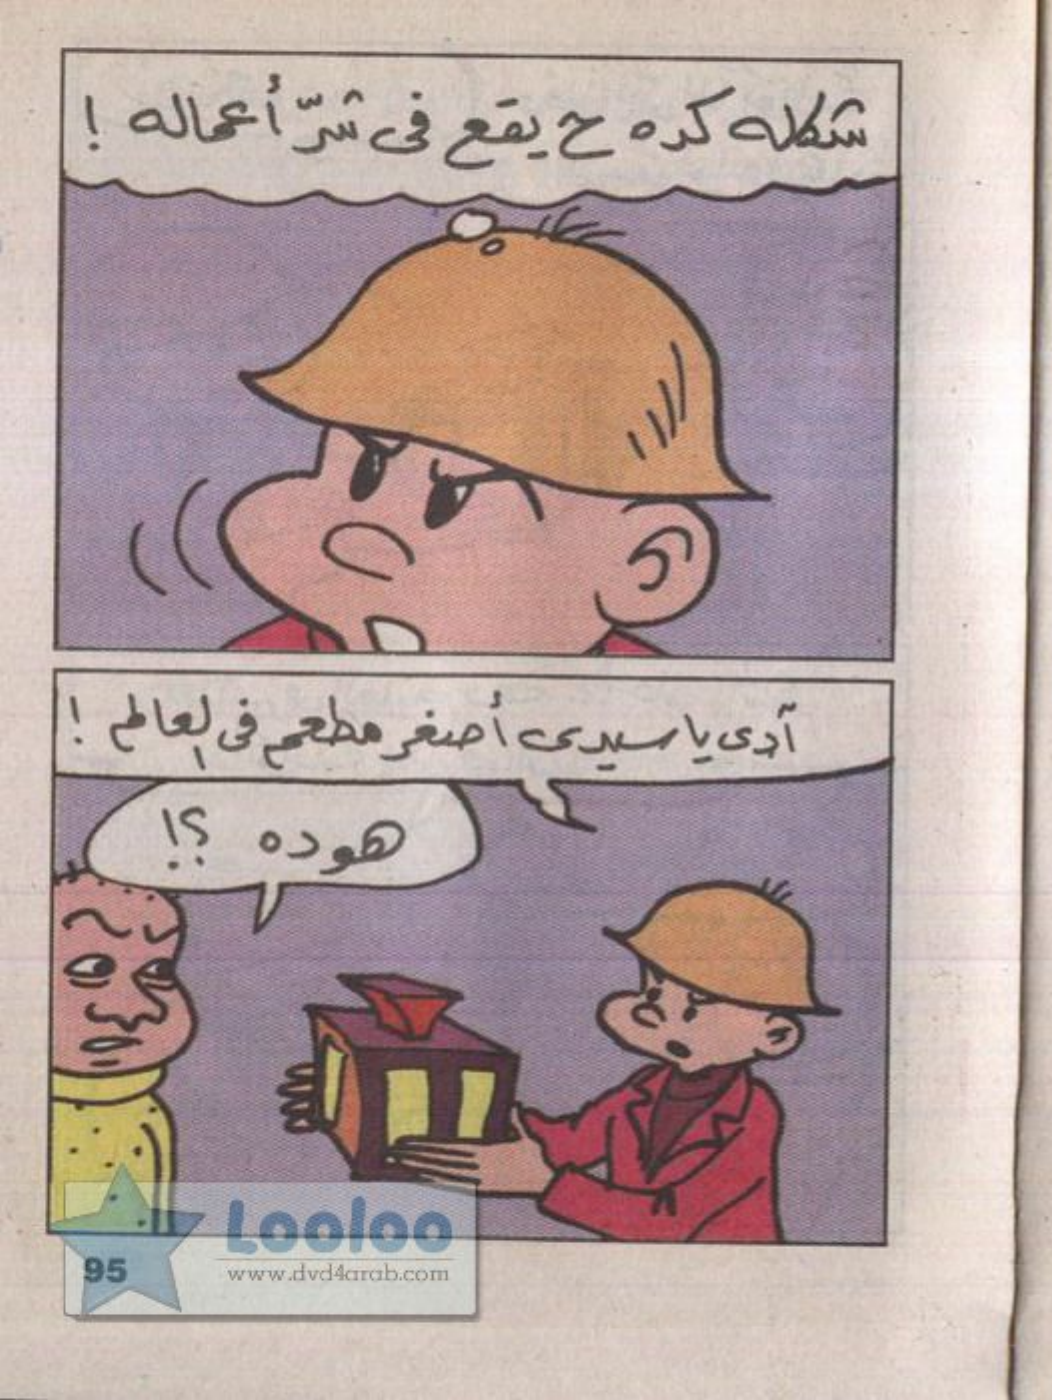 شكله كده ح يقع فى شرّ أعماله !
آدى يا سيدى أصغر مطعم فى العالم !
هو ده ؟!
Looloo
www.dvd4arab.com
95